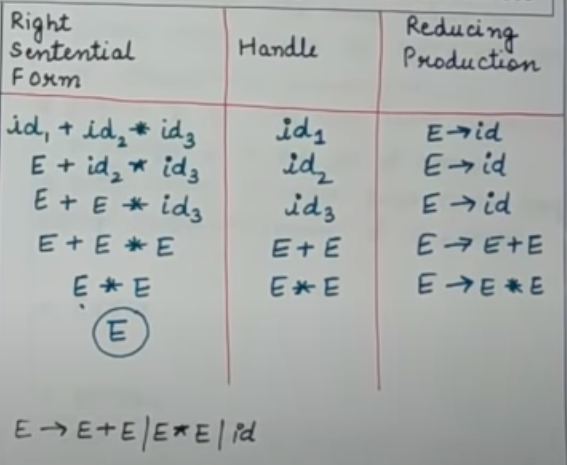 Right Sentential Form | Handle | Reducing Production
id₁ + id₂ * id₃ | id₁ | E → id
E + id₂ * id₃ | id₂ | E → id
E + E * id₃ | id₃ | E → id
E + E * E | E + E | E → E + E
E * E | E * E | E → E * E
E
E → E + E | E * E | id